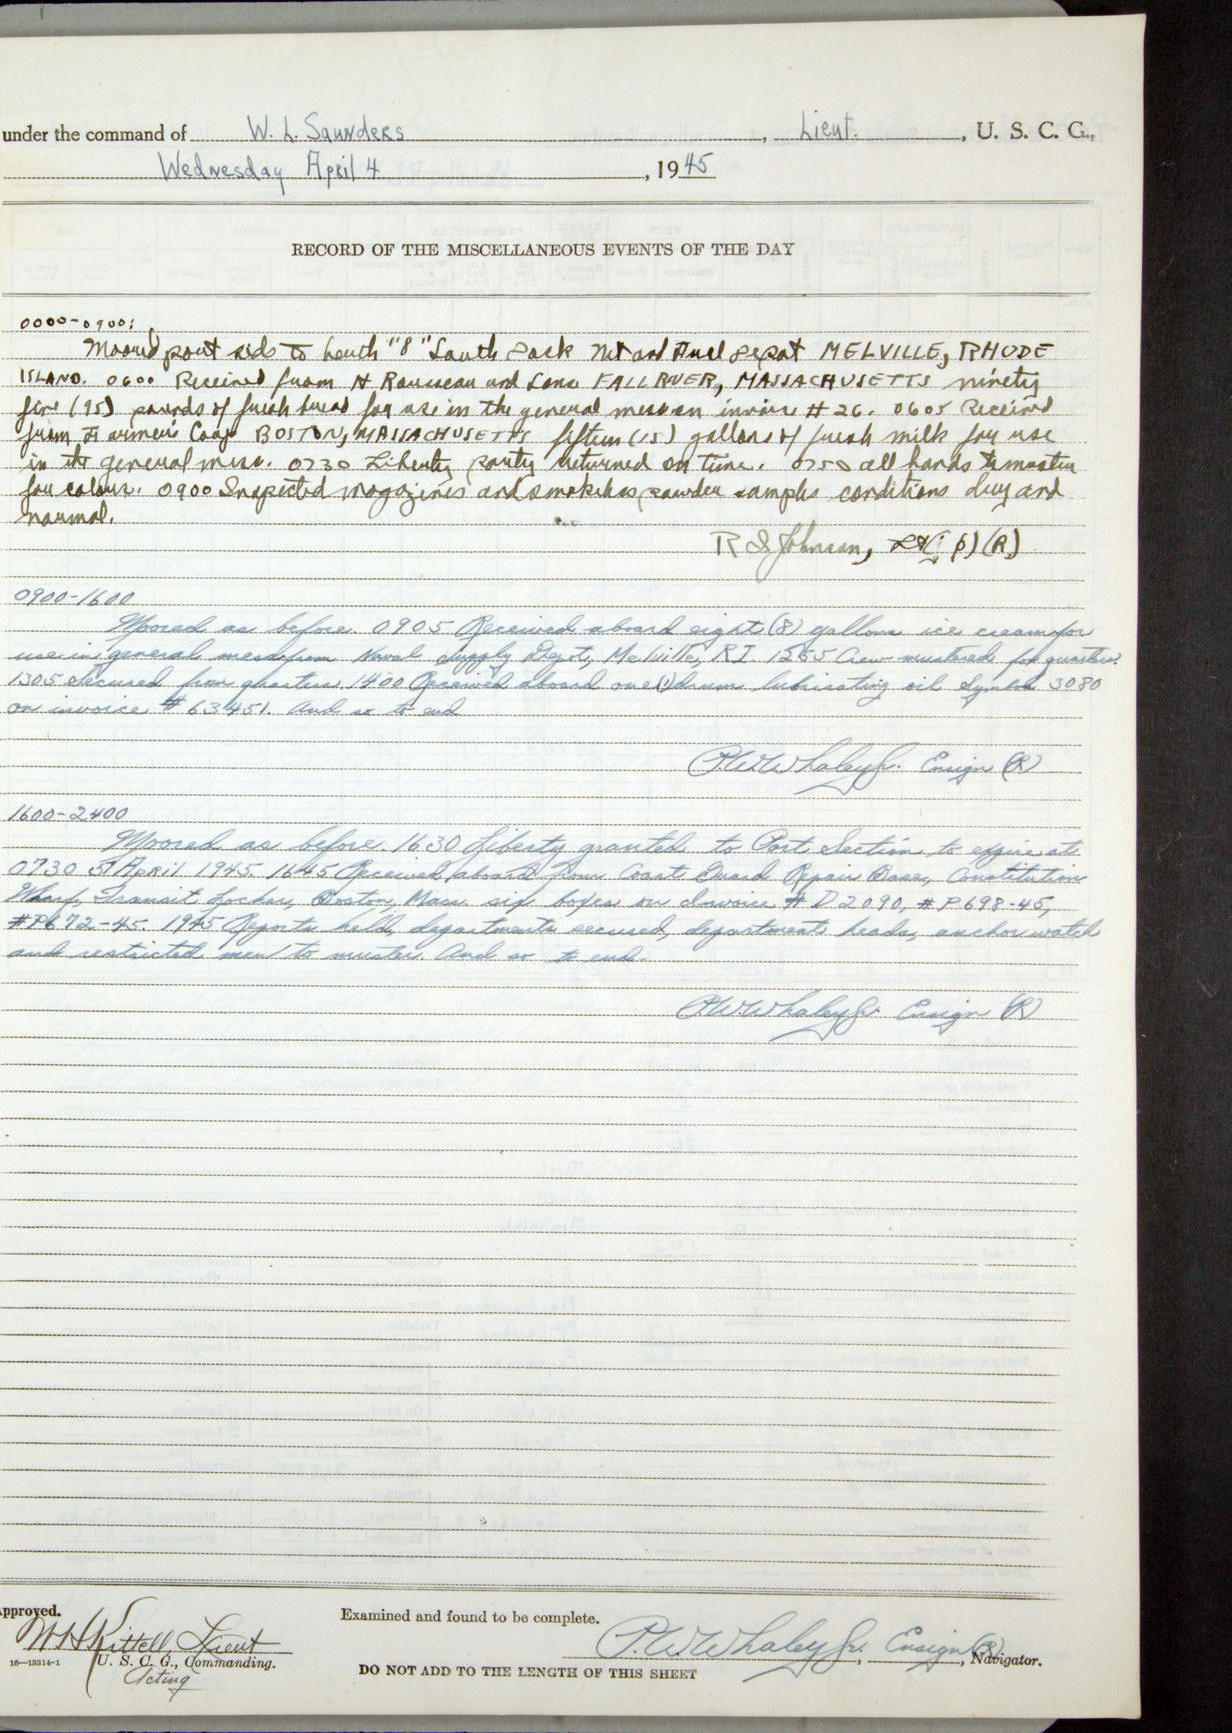 under the command of W. L. Saunders, Lieut., U. S. C. G.,
Wednesday April 4, 1945
RECORD OF THE MISCELLANEOUS EVENTS OF THE DAY
0000-0900:
Moored port side to berth "8" South Dock Net and Fuel Depot MELVILLE, RHODE
ISLAND. 0600 Received from H Rousseau and Sons FALL RIVER, MASSACHUSETTS ninety
five (95) pounds of fresh bread for use in the general mess on invoice # 26. 0605 Received
from Farmers Coop BOSTON, MASSACHUSETTS fifteen (15) gallons of fresh milk for use
in the general mess. 0730 Liberty party returned on time. 0750 all hands to muster
for colors. 0900 Inspected magazines and smokeless powder samples conditions dry and
normal.
R Johnson, (R)
0900-1600
Moored as before. 0905 Received aboard eight (8) gallons ice cream for
use in general mess from Naval Supply Depot, Melville, R.I. 1255 Crew mustered for quarters.
1305 Secured from quarters. 1400 Received aboard one (1) drum lubricating oil symbol 3080
on invoice # 63451. And so to end
P.W. Whaley Jr. Ensign (R)
1600-2400
Moored as before. 1630 Liberty granted to Port Section to expire at
0730 5 April 1945. 1645 Received aboard from Coast Guard Repair Base, Constitution
Wharf, Transit Locker, Boston, Mass. six boxes on invoice # D2090, # P698-45,
#P672-45. 1945 Reports held, departments secured, department heads, anchor watch
and restricted men to muster. And so to end.
P.W. Whaley Jr. Ensign (R)
Approved. Examined and found to be complete.
W H Kittell, Lieut P.W. Whaley Jr., Ensign (R), Navigator.
16—13314-1 U. S. C. G., Commanding. DO NOT ADD TO THE LENGTH OF THIS SHEET
Acting